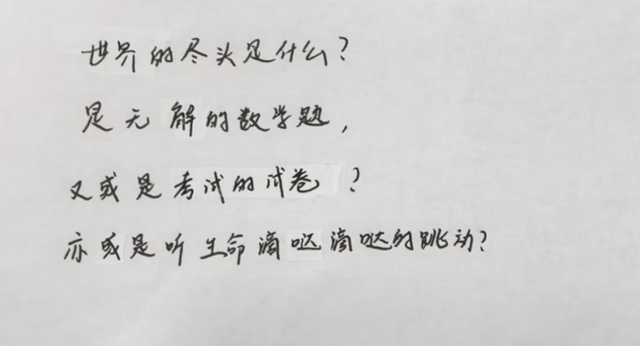 世界的尽头是什么？
是无解的数学题，
又或是考试的试卷？
亦或是听生命滴哒滴哒的跳动？